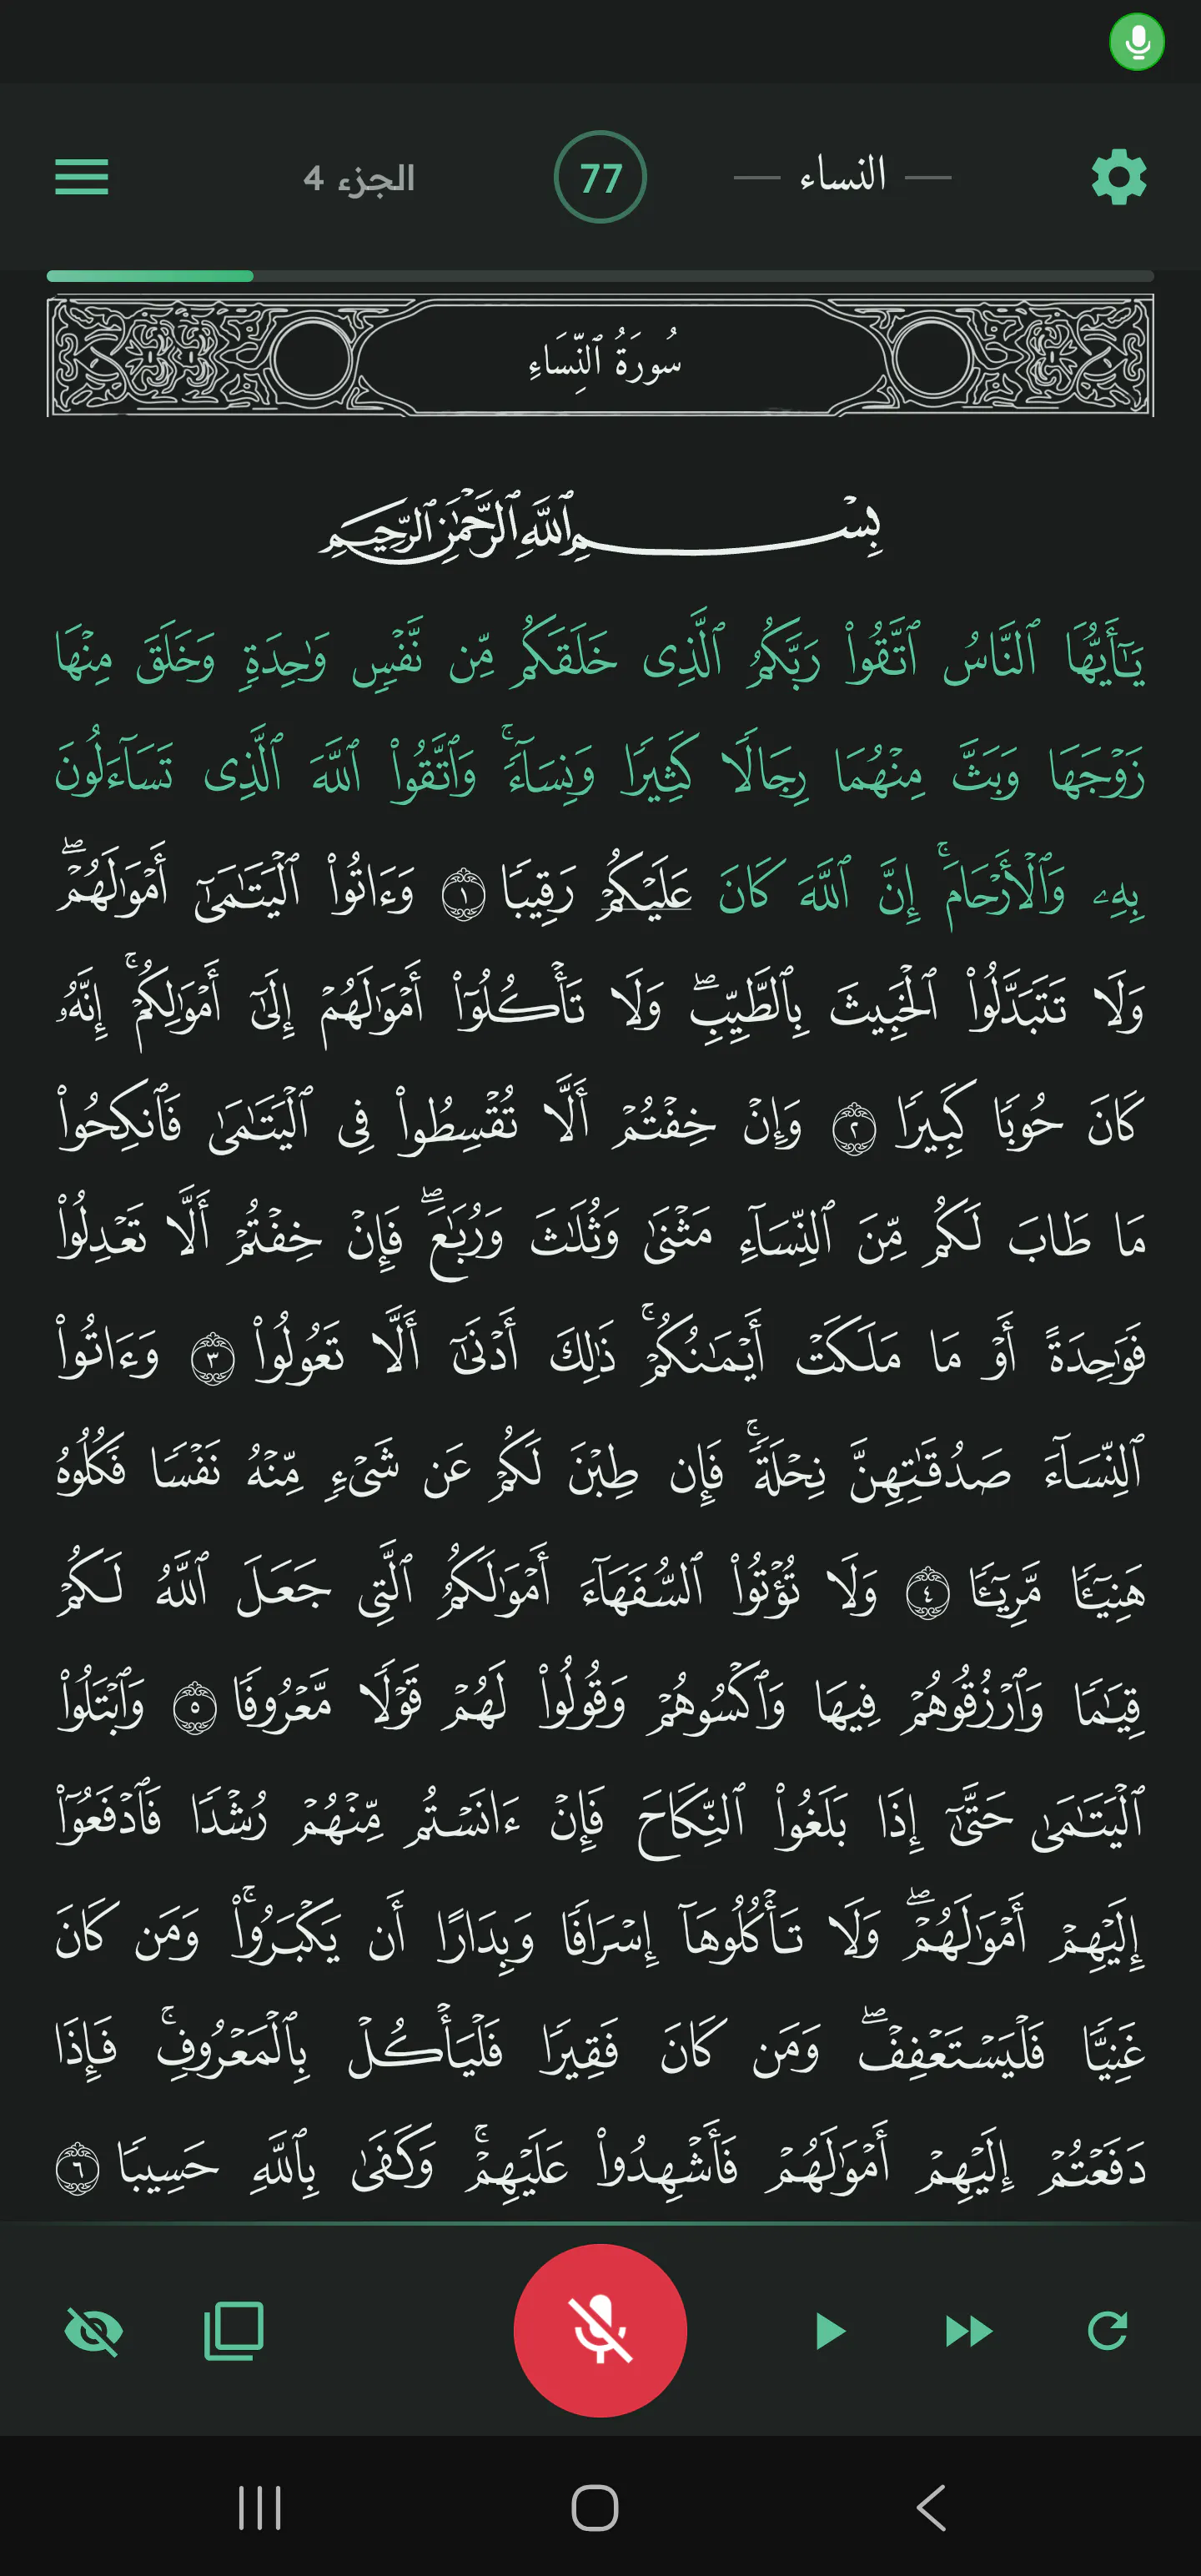 النساء
77
الجزء 4
سُورَةُ ٱلنِّسَاءِ
بِسْمِ ٱللَّهِ ٱلرَّحْمَٰنِ ٱلرَّحِيمِ
يَٰٓأَيُّهَا ٱلنَّاسُ ٱتَّقُوا۟ رَبَّكُمُ ٱلَّذِى خَلَقَكُم مِّن نَّفْسٍ وَٰحِدَةٍ وَخَلَقَ مِنْهَا
زَوْجَهَا وَبَثَّ مِنْهُمَا رِجَالًا كَثِيرًا وَنِسَآءً ۚ وَٱتَّقُوا۟ ٱللَّهَ ٱلَّذِى تَسَآءَلُونَ
بِهِۦ وَٱلْأَرْحَامَ ۚ إِنَّ ٱللَّهَ كَانَ عَلَيْكُمْ رَقِيبًا ١ وَءَاتُوا۟ ٱلْيَتَٰمَىٰٓ أَمْوَٰلَهُمْ ۖ
وَلَا تَتَبَدَّلُوا۟ ٱلْخَبِيثَ بِٱلطَّيِّبِ ۖ وَلَا تَأْكُلُوٓا۟ أَمْوَٰلَهُمْ إِلَىٰٓ أَمْوَٰلِكُمْ ۚ إِنَّهُۥ
كَانَ حُوبًا كَبِيرًا ٢ وَإِنْ خِفْتُمْ أَلَّا تُقْسِطُوا۟ فِى ٱلْيَتَٰمَىٰ فَٱنكِحُوا۟
مَا طَابَ لَكُم مِّنَ ٱلنِّسَآءِ مَثْنَىٰ وَثُلَٰثَ وَرُبَٰعَ ۖ فَإِنْ خِفْتُمْ أَلَّا تَعْدِلُوا۟
فَوَٰحِدَةً أَوْ مَا مَلَكَتْ أَيْمَٰنُكُمْ ۚ ذَٰلِكَ أَدْنَىٰٓ أَلَّا تَعُولُوا۟ ٣ وَءَاتُوا۟
ٱلنِّسَآءَ صَدُقَٰتِهِنَّ نِحْلَةً ۚ فَإِن طِبْنَ لَكُمْ عَن شَىْءٍ مِّنْهُ نَفْسًا فَكُلُوهُ
هَنِيٓـًٔا مَّرِيٓـًٔا ٤ وَلَا تُؤْتُوا۟ ٱلسُّفَهَآءَ أَمْوَٰلَكُمُ ٱلَّتِى جَعَلَ ٱللَّهُ لَكُمْ
قِيَٰمًا وَٱرْزُقُوهُمْ فِيهَا وَٱكْسُوهُمْ وَقُولُوا۟ لَهُمْ قَوْلًا مَّعْرُوفًا ٥ وَٱبْتَلُوا۟
ٱلْيَتَٰمَىٰ حَتَّىٰٓ إِذَا بَلَغُوا۟ ٱلنِّكَاحَ فَإِنْ ءَانَسْتُم مِّنْهُمْ رُشْدًا فَٱدْفَعُوٓا۟
إِلَيْهِمْ أَمْوَٰلَهُمْ ۖ وَلَا تَأْكُلُوهَآ إِسْرَافًا وَبِدَارًا أَن يَكْبَرُوا۟ ۚ وَمَن كَانَ
غَنِيًّا فَلْيَسْتَعْفِفْ ۖ وَمَن كَانَ فَقِيرًا فَلْيَأْكُلْ بِٱلْمَعْرُوفِ ۚ فَإِذَا
دَفَعْتُمْ إِلَيْهِمْ أَمْوَٰلَهُمْ فَأَشْهِدُوا۟ عَلَيْهِمْ ۚ وَكَفَىٰ بِٱللَّهِ حَسِيبًا ٦